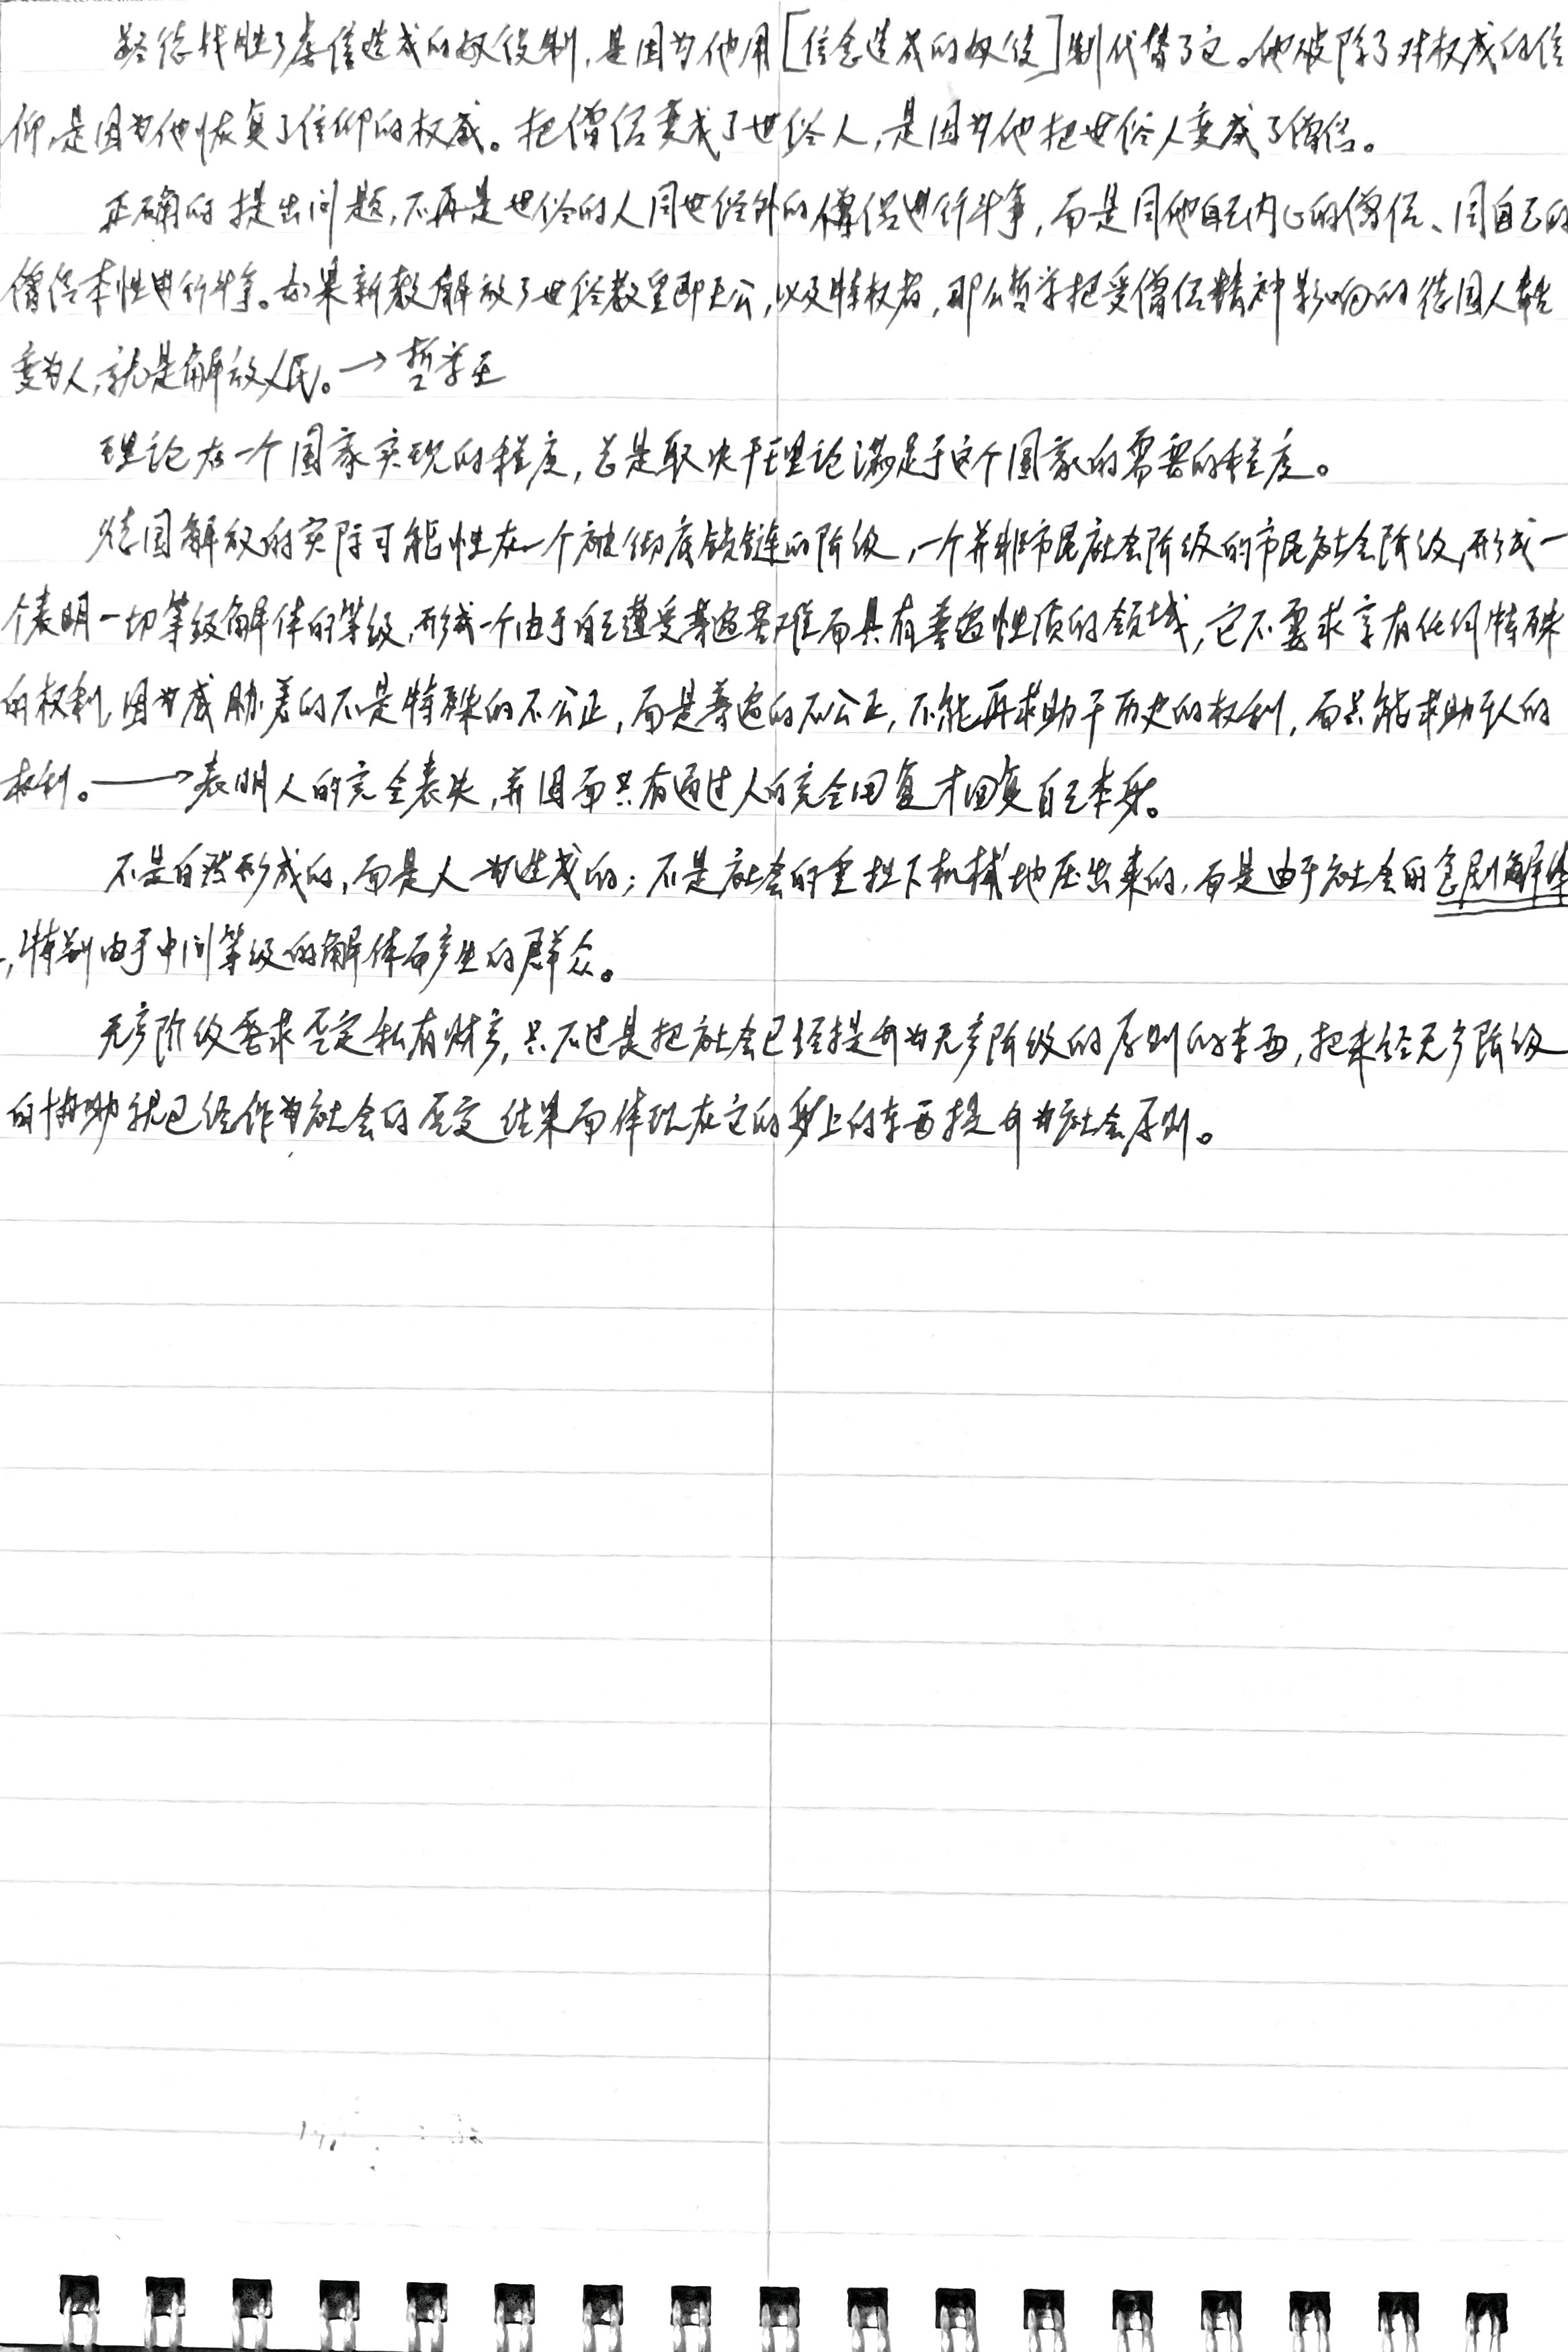 路德战胜了虔信造成的奴役制,是因为他用[信念造成的奴役]制代替了它。他破除了对权威的信
仰,是因为他恢复了信仰的权威。把僧侣变成了世俗人,是因为他把世俗人变成了僧侣。
正确的提出问题,不再是世俗的人同世俗外的僧侣进行斗争,而是同他自己内心的僧侣、同自己的
僧侣本性进行斗争。如果新教解放了世俗教皇即王公,以及特权者,那么哲学把受僧侣精神影响的德国人转
变为人,就是解放人民。→哲学王
理论在一个国家实现的程度,总是取决于理论满足于这个国家的需要的程度。
德国解放的实际可能性在一个被彻底锁链的阶级,一个并非市民社会阶级的市民社会阶级,形成一
个表明一切等级解体的等级,形成一个由于自己遭受普遍苦难而具有普遍性质的领域,它不要求享有任何特殊
的权利,因为威胁着的不是特殊的不公正,而是普遍的不公正,不能再求助于历史的权利,而只能求助于人的
权利。→表明人的完全丧失,并因而只有通过人的完全回复才回复自己本身。
不是自然形成的,而是人为造成的;不是社会的重担下机械地压出来的,而是由于社会的急剧解体
,特别由于中间等级的解体而产生的群众。
无产阶级要求否定私有财产,只不过是把社会已经提升为无产阶级的原则的东西,把未经无产阶级
的协助就已经作为社会的否定结果而体现在它的身上的东西提升为社会原则。